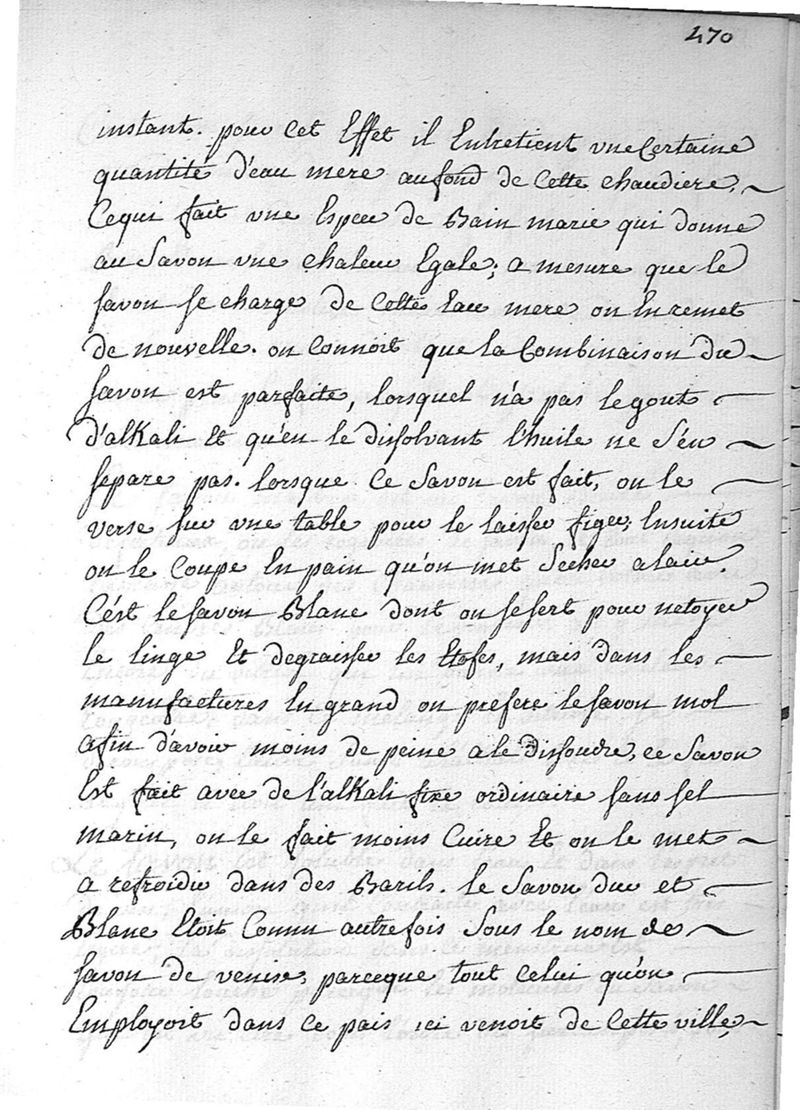 470
instant. pour cet Effet il Entretient vne Certaine
quantité d'eau mere au fond de cette chaudiere,
Cequi fait vne Espece de Bain marie qui donne
au Savon vne chaleur Egale; a mesure que le
savon se charge de Cette Eau mere on En remet
de nouvelle. on Connoit que la Combinaison du
savon est parfaite, lorsquel n'a pas le gout
d'alkali Et qu'en le dissolvant l'huile ne s'en
separe pas. lorsque Ce Savon est fait, on le
verse sur vne table pour le laisser figer, Ensuite
on le Coupe En pain qu'on met Secher a lair.
C'ést le savon Blanc dont on se sert pour netoyer
le linge Et degraisser les Etofes, mais dans les
manufactures En grand on prefere le savon mol
afin d'avoir moins de peine a le dissoudre, ce Savon
Est fait avec de l'alkali fixe ordinaire sans sel
marin, on le fait moins Cuire Et on le met
a refroidir dans des Barils. le Savon dur et
Blanc Etoit Connu autrefois Sous le nom de
savon de venise, parceque tout Celui qu'on
Employoit dans ce païs ici venoit de Cette ville,